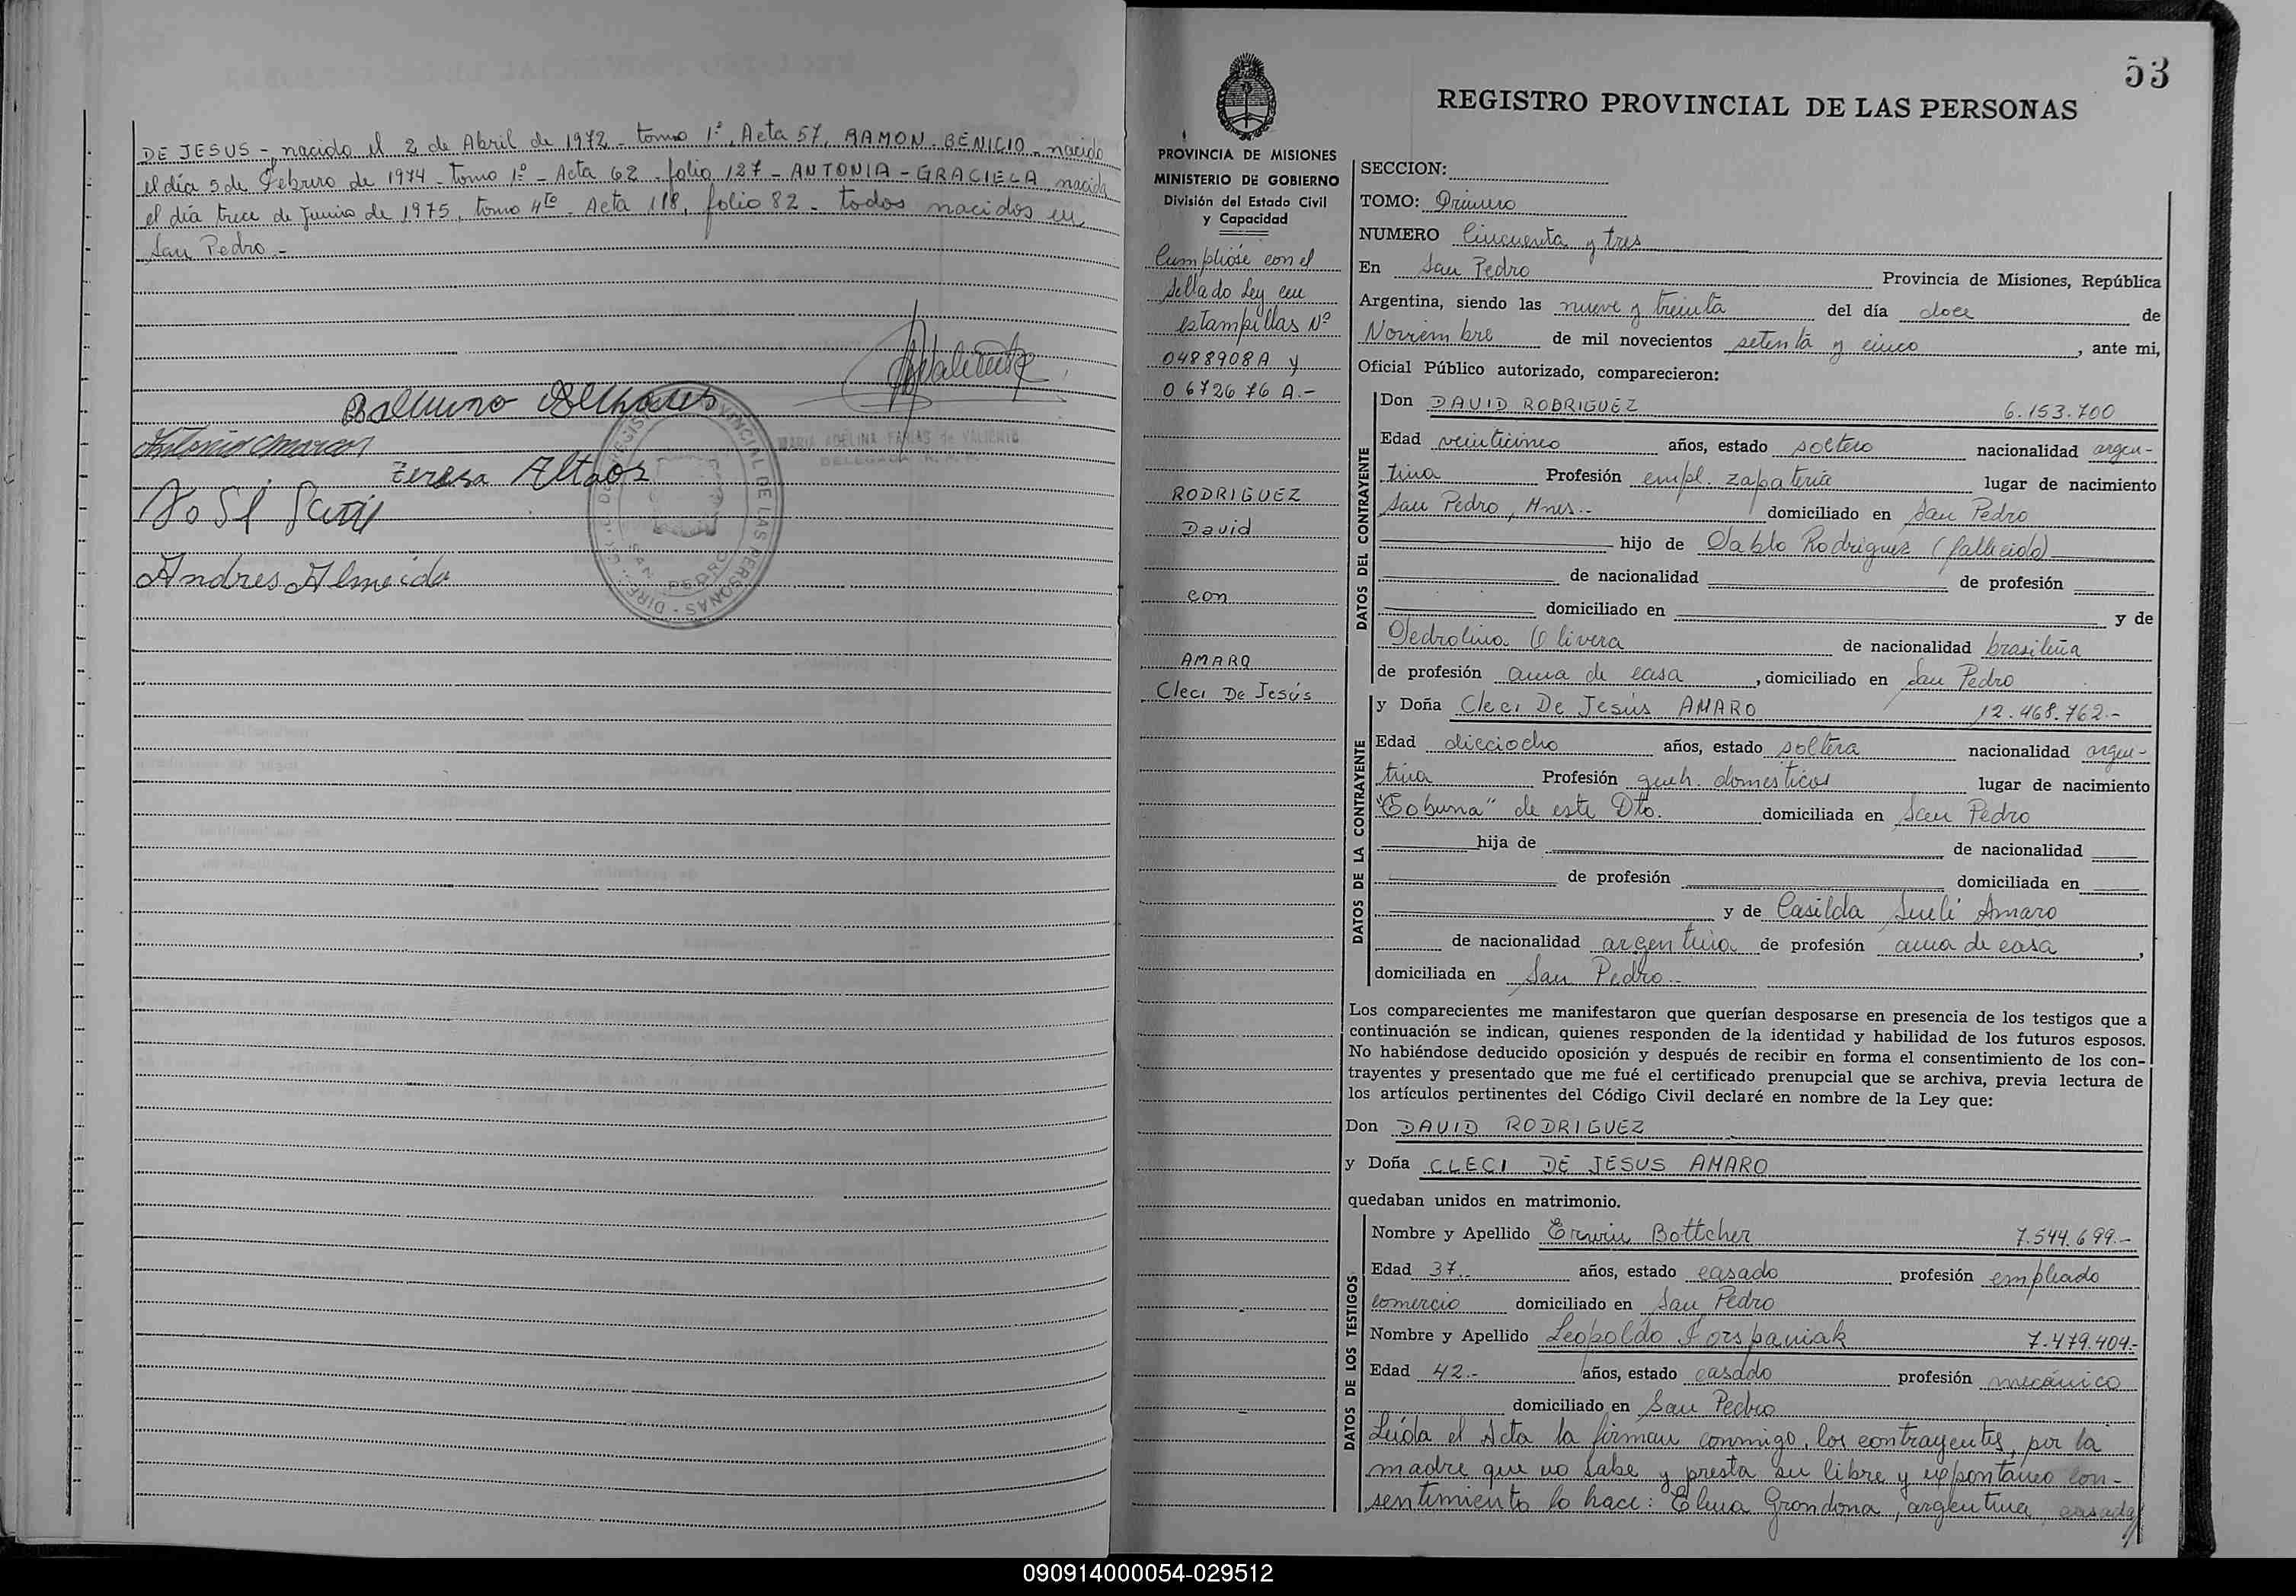 DE JESUS -, nacido el 2 de Abril de 1972 - tomo 1º, Acta 57, RAMON - BENICIO - nacido
el día 5 de Febrero de 1974 - tomo 1º - Acta 62 - folio 127 - ANTONIA - GRACIELA, nacida
el día trece de Junio de 1975, tomo 4to - Acta 118, folio 82 - todos nacidos en
San Pedro.-
MARIA ADELINA FARIAS de VALIENTE
DELEGADA
Teresa
José
Andres Almeida
53
REGISTRO PROVINCIAL DE LAS PERSONAS
PROVINCIA DE MISIONES
MINISTERIO DE GOBIERNO
División del Estado Civil
y Capacidad
Cumplióse con el
sellado Ley en
estampillas Nº
0488908A y
0672676 A.-
RODRIGUEZ
David
con
AMARO
Cleci De Jesús
SECCION:
TOMO: Primero
NUMERO Cincuenta y tres
En San Pedro Provincia de Misiones, República
Argentina, siendo las nueve y treinta del día doce de
Noviembre de mil novecientos setenta y cinco, ante mi,
Oficial Público autorizado, comparecieron:
DATOS DEL CONTRAYENTE
Don DAVID RODRIGUEZ 6.153.700
Edad veinticinco años, estado soltero nacionalidad argen-
tina Profesión empl. zapateria lugar de nacimiento
San Pedro, Mnes.- domiciliado en San Pedro
hijo de Pablo Rodriguez (fallecido)
de nacionalidad de profesión
domiciliado en y de
Pedrolina Olivera de nacionalidad brasileña
de profesión ama de casa, domiciliado en San Pedro
DATOS DE LA CONTRAYENTE
y Doña Cleci De Jesús AMARO 12.468.762.-
Edad dieciocho años, estado soltera nacionalidad argen-
tina Profesión queh. domesticos lugar de nacimiento
"Tobuna" de este Dto. domiciliada en San Pedro
hija de de nacionalidad
de profesión domiciliada en
y de Casilda Sueli Amaro
de nacionalidad argentina de profesión ama de casa,
domiciliada en San Pedro.-
Los comparecientes me manifestaron que querían desposarse en presencia de los testigos que a
continuación se indican, quienes responden de la identidad y habilidad de los futuros esposos.
No habiéndose deducido oposición y después de recibir en forma el consentimiento de los con-
trayentes y presentado que me fué el certificado prenupcial que se archiva, previa lectura de
los artículos pertinentes del Código Civil declaré en nombre de la Ley que:
Don DAVID RODRIGUEZ
y Doña CLECI DE JESUS AMARO
quedaban unidos en matrimonio.
DATOS DE LOS TESTIGOS
Nombre y Apellido Erwin Bottcher 7.544.699.-
Edad 37.- años, estado casado profesión empleado
comercio domiciliado en San Pedro
Nombre y Apellido Leopoldo 7.479.404.-
Edad 42.- años, estado casado profesión mecánico
domiciliado en San Pedro
Leída el Acta la firman conmigo, los contrayentes, por la
madre que no sabe y presta su libre y expontaneo con-
sentimiento lo hace: Elma Grondona, argentina, casada
090914000054-029512